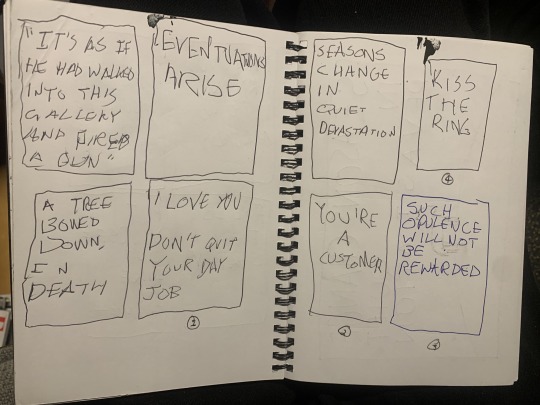 "IT'S AS IF
HE HAD WALKED
INTO THIS
GALLERY
AND FIRED
A GUN"
EVENTUATIONS
ARISE
A TREE
BOWED
DOWN,
IN
DEATH
I LOVE YOU
DON'T QUIT
YOUR DAY
JOB
1
SEASONS
CHANGE
IN
QUIET
DEVASTATION
KISS
THE
RING
4
YOU'RE
A
CUSTOMER
2
SUCH
OPULENCE
WILL NOT
BE
REWARDED
3